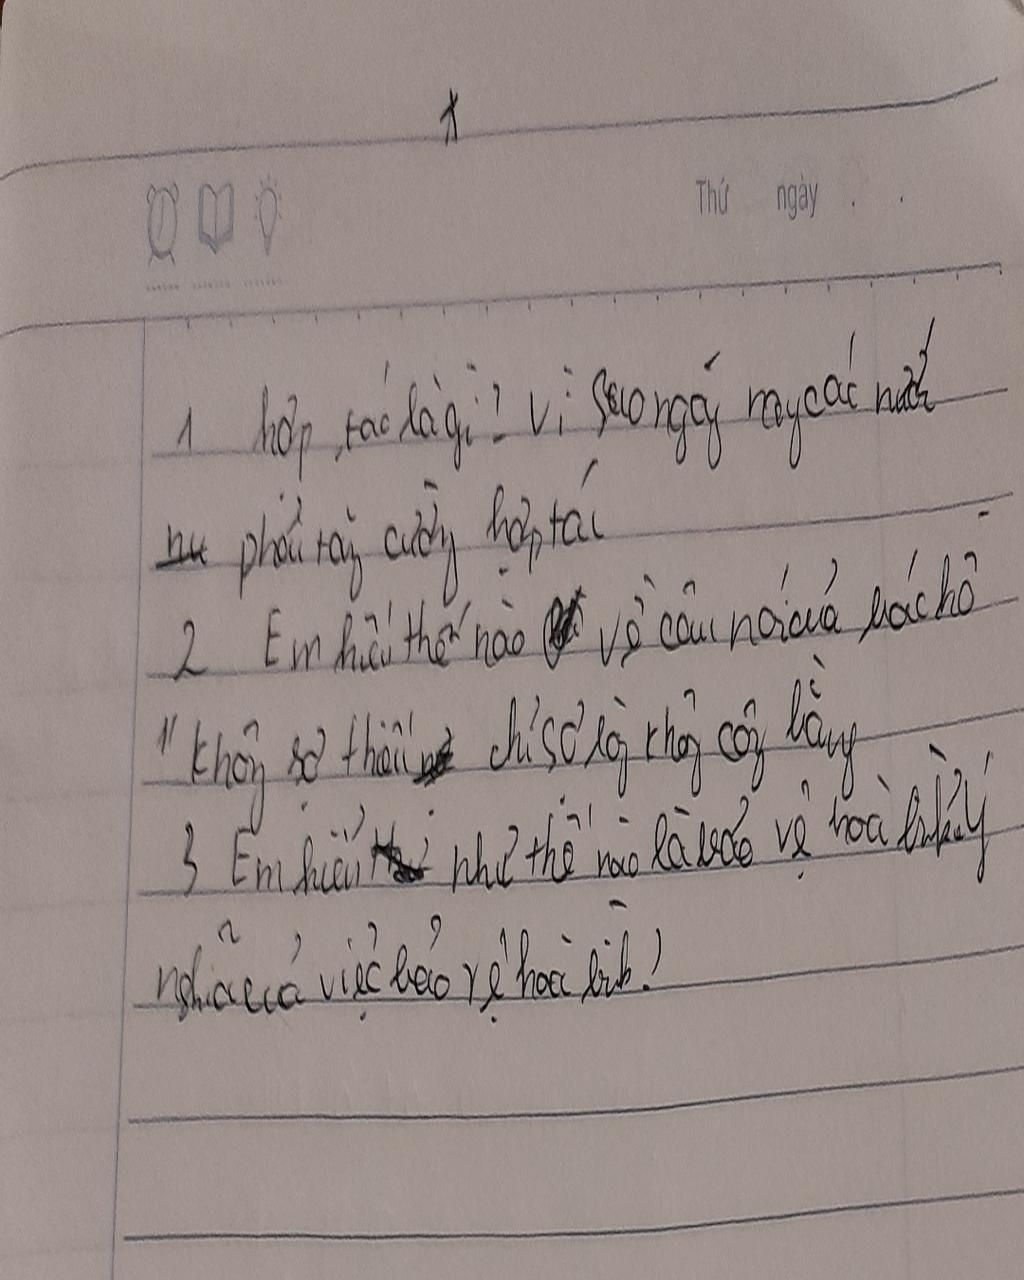 Thứ ngày . .
1 hợp tác là gì? Vì sao ngày nay các nước
phải tăng cường hợp tác
2 Em hiểu thế nào về câu nói của bác hồ
"không sợ thiếu chỉ sợ là không công bằng
3 Em hiểu như thế nào là bảo vệ hoà bình, ý
nghĩa của việc bảo vệ hoà bình?